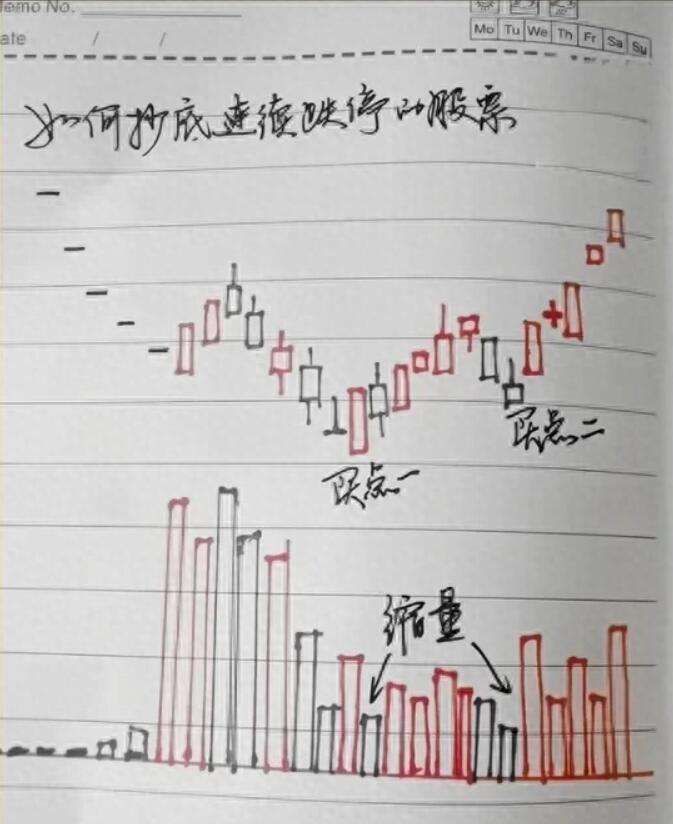 Memo No.
Mo Tu We Th Fr Sa Su
Date / /
如何抄底连续跌停的股票
买点二
买点一
缩量